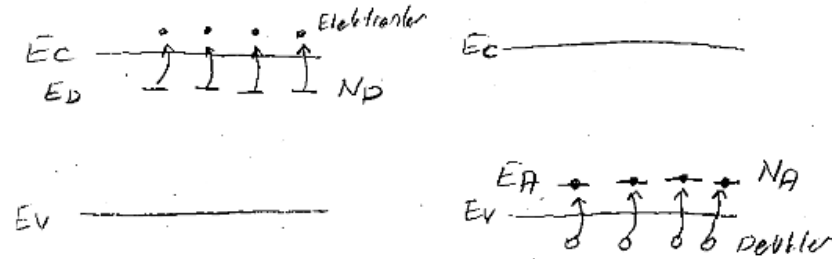 Elektronlar
Ec
ED ND
Ev
Ec
EA NA
Ev
Deşikler